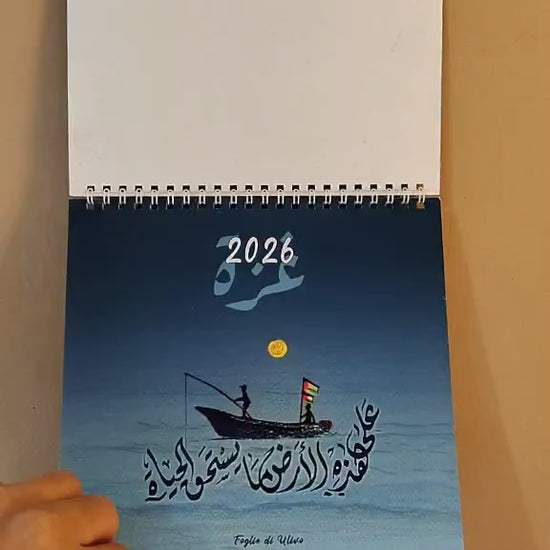 2026
غزة
على هذه الأرض ما يستحق الحياة
Foglie di Ulivo